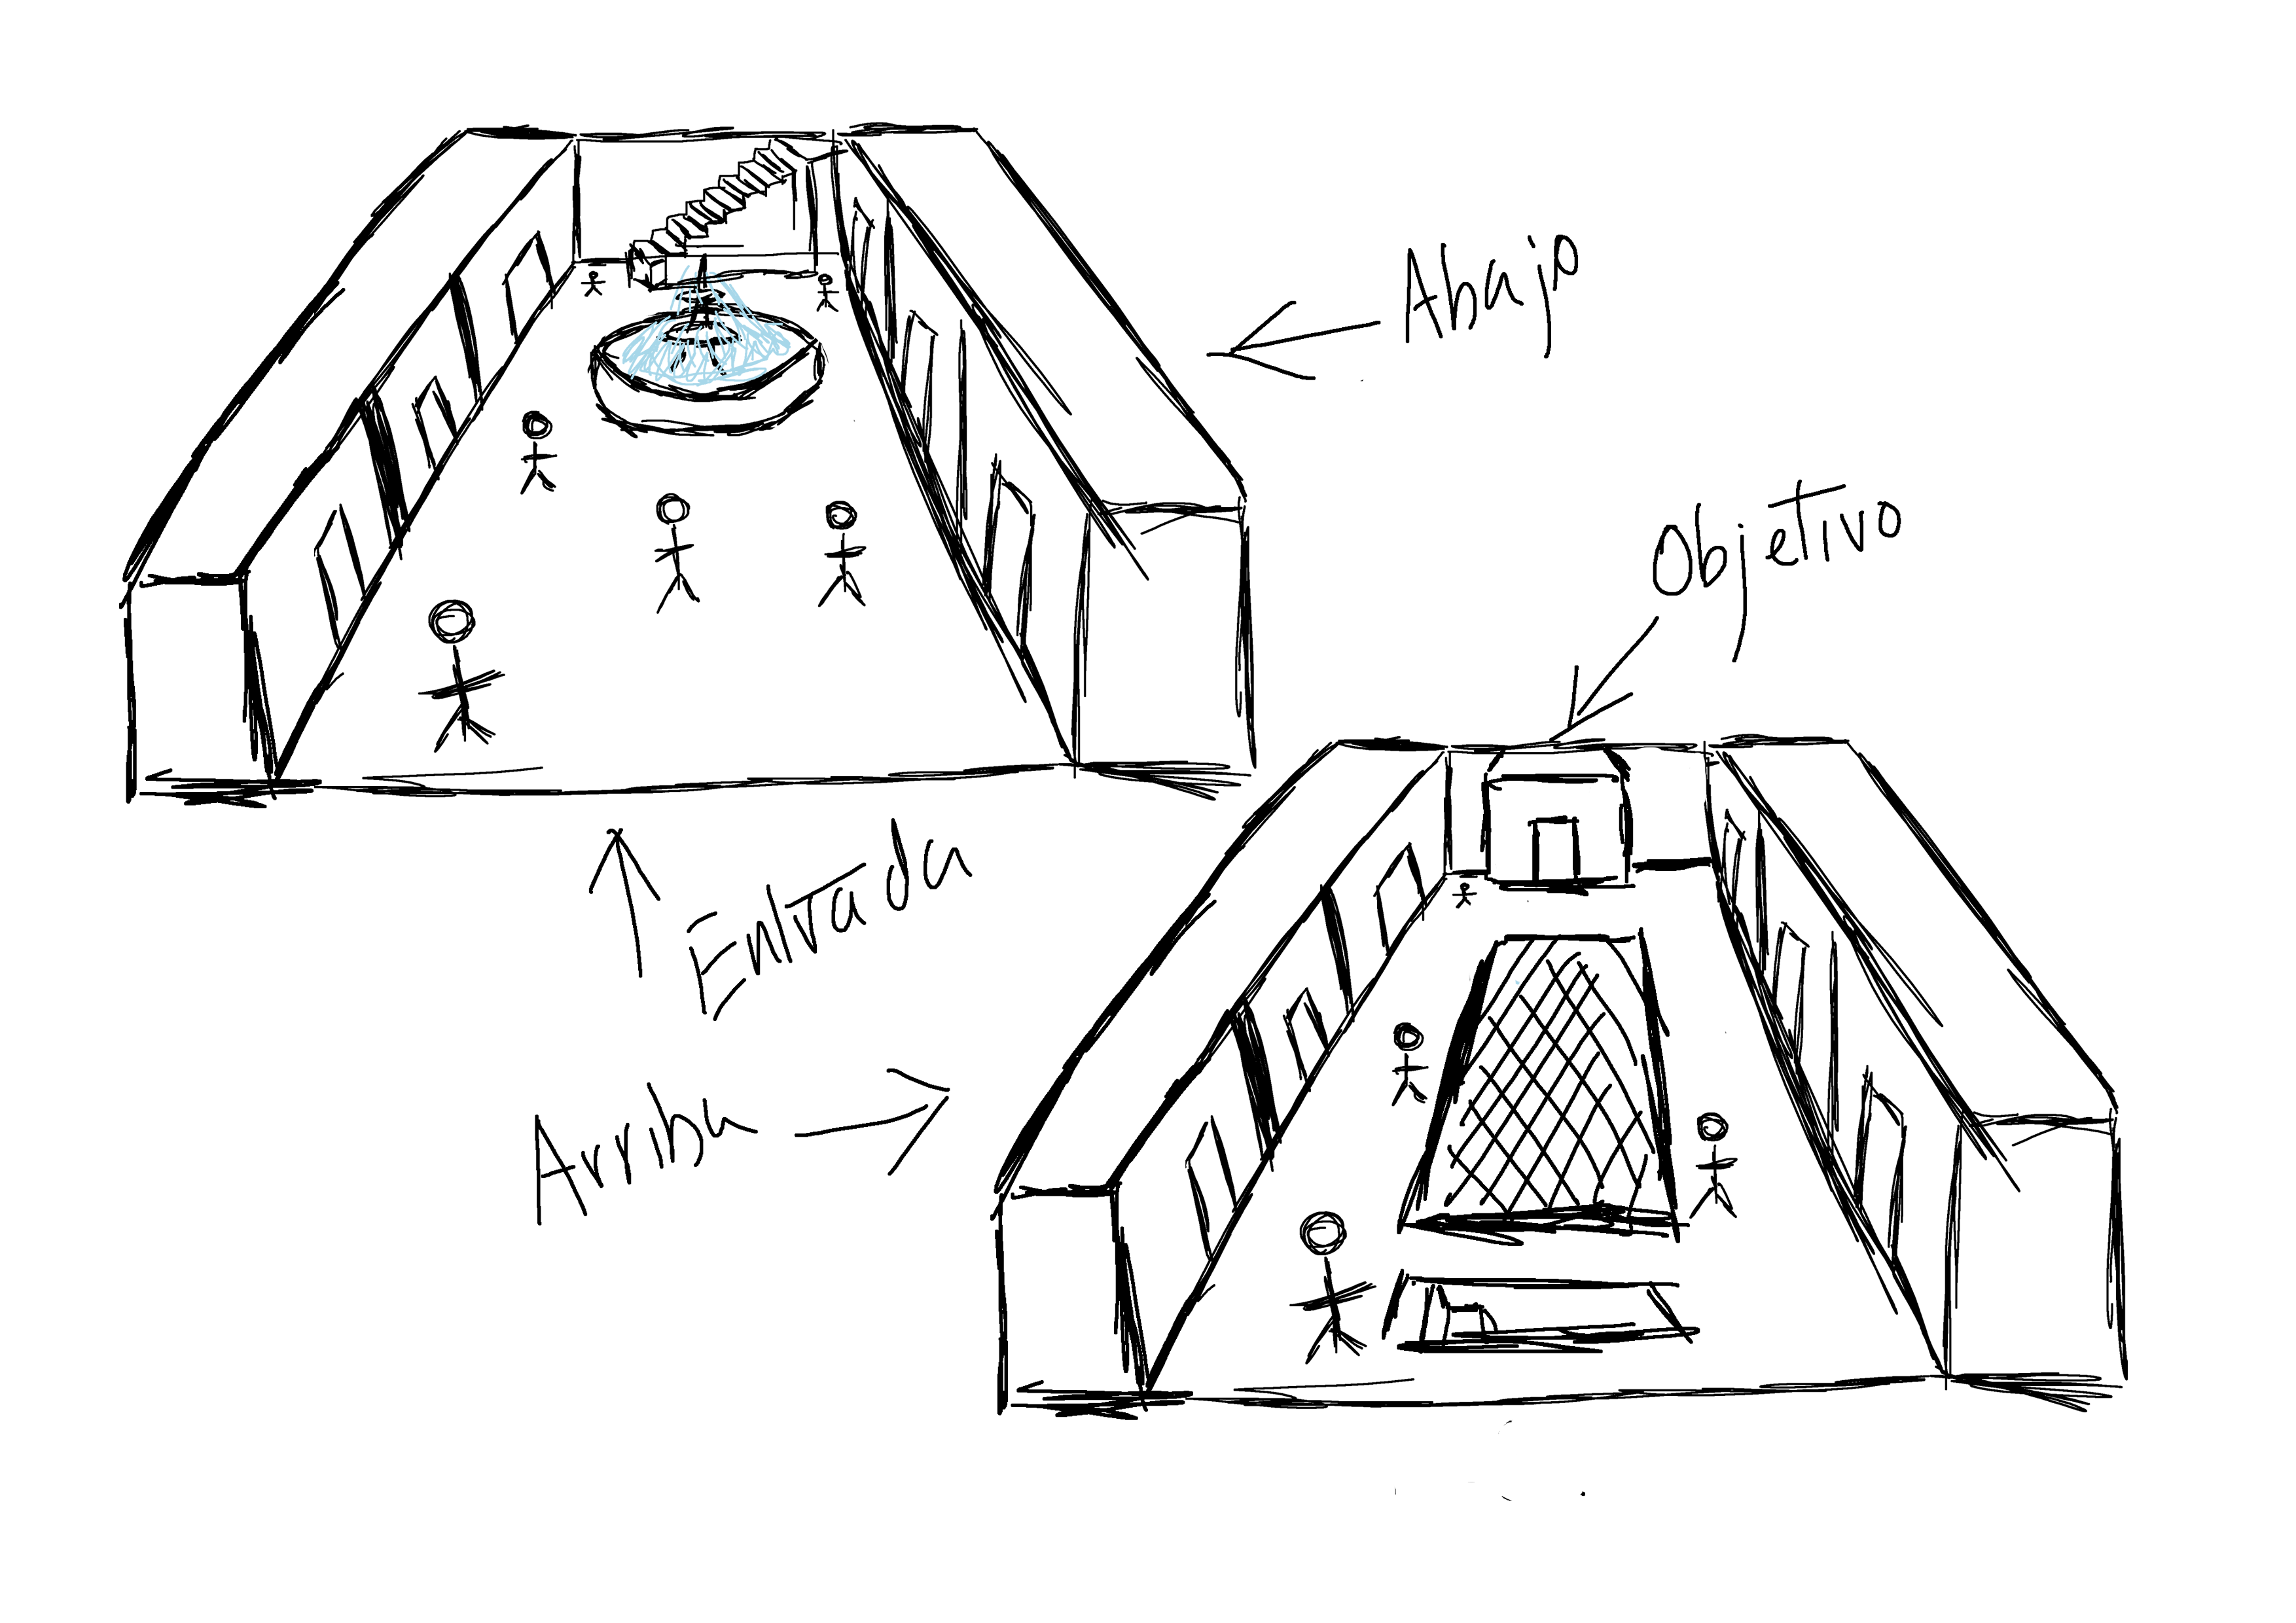 Abajo
Objetivo
Entrada
Arriba